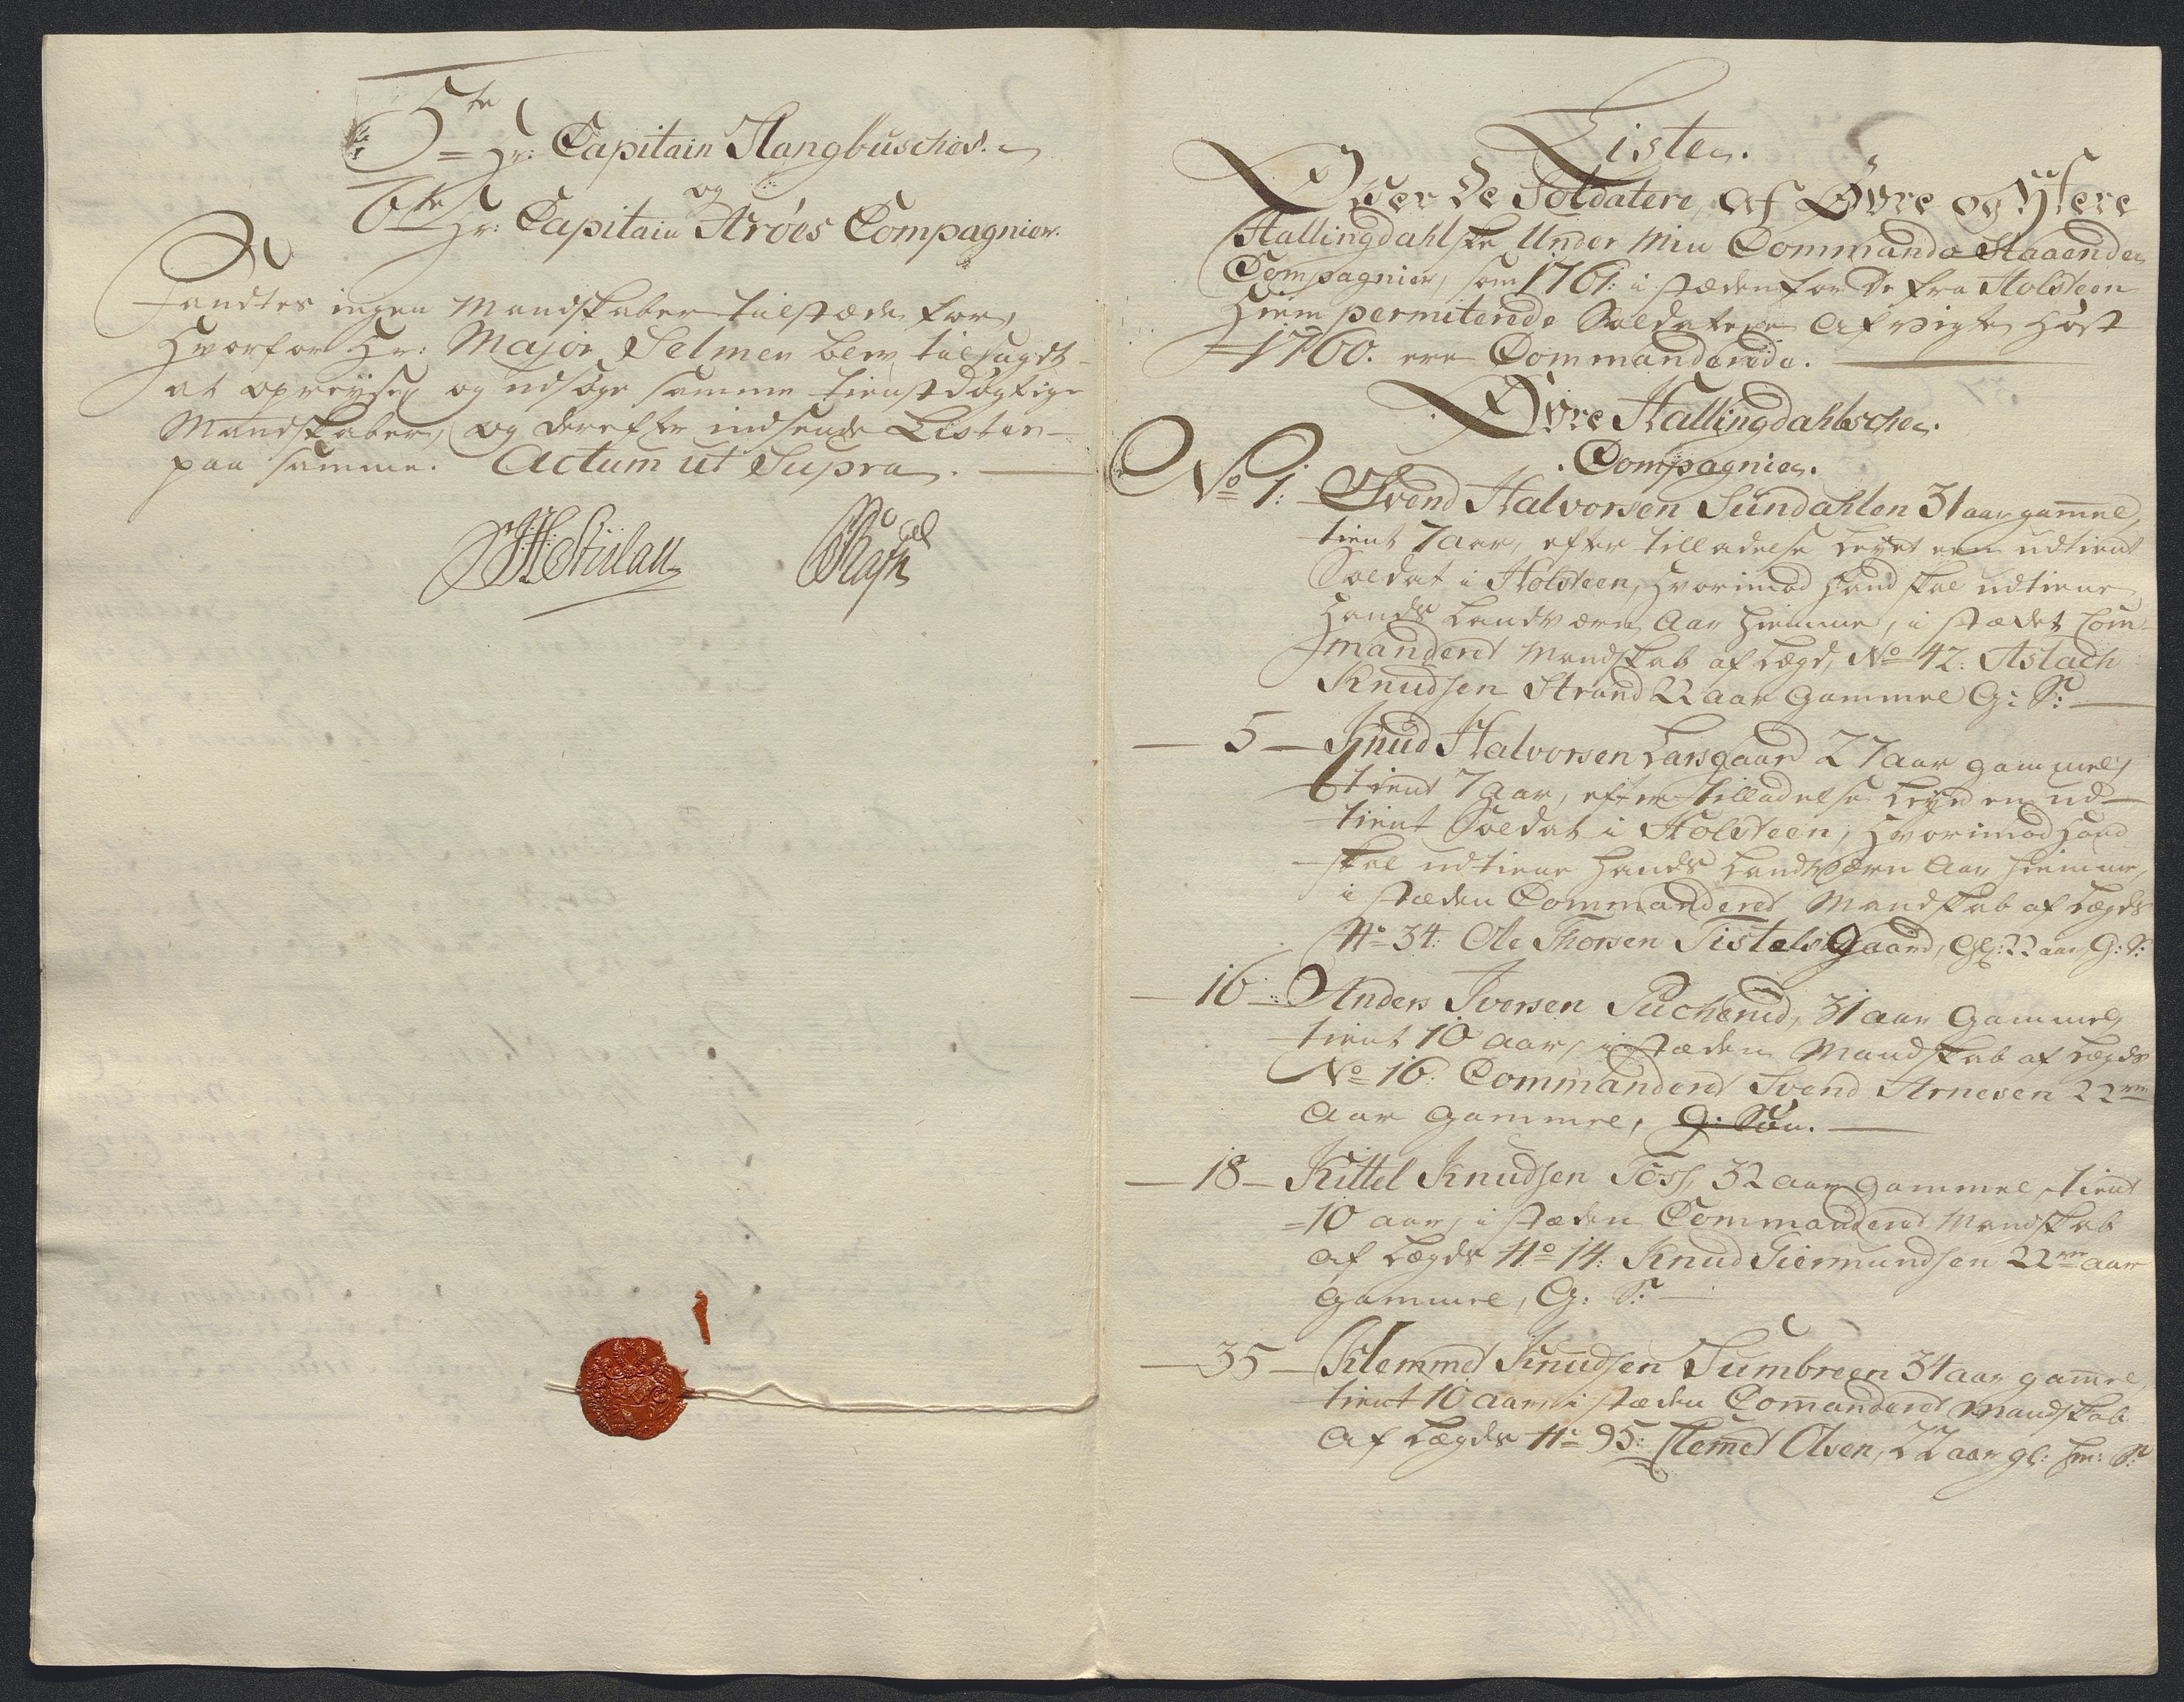 5te Hr: Capitain Hangbusches.
og
6te Hr: Capitain Aröes Compagnier.
Fandtes ingen Mandskaber tilstæde for,
Hvorfor Hr: Major Selmer blev tilsagdt
at opreyse og udsøge samme tienstdögtige
Mandskaber, og derefter indsende Listen
paa samme. Actum ut Supra.
Listen.
Over De Soldatere af Øvre og Ytere
Hallingdahlske Under Min Commando Staaende
Compagnier, som 1761: i stæden for De fra Holsteen
Hiem permiterede Soldatere Afvigte Høst
1760. ere Commanderede.
Øvre Hallingdahlsche.
Compagnie.
No 1: Svend Halvorsen Sundahlen 31 aar gamel,
tient 7 aar, efter tilladelse Leyet een udtient
Soldat i Holsteen, Hvorimod Hand skal udtiene
Hands Landværn Aar Hiemme, i stædet Com-
manderet Mandskab af Lægd, No 42: Aslach
Knudsen Strand 22 aar Gammel G: S:
5 Knud Halvorsen Larsgaard 27 aar gammel,
tient 7 aar, efter tilladelse Leyed en ud-
tient Soldat i Holsteen, Hvorimod Hand
skal udtiene Hands Landværn Aar Hiemme,
i stæden Commanderet Mandskab af Lægds
No 34: Ole Thorsen Tistelsgaard, Gl: 22 aar G: S:
16 Anders Iversen Rucherud, 31 aar Gammel
tient 10 aar, i stæden Mandskab af Lægds
No 16: Commanderet Svend Arnesen 22
Aar Gammel, G: Søn.
18 Kittel Knudsen Foss, 32 aar Gammel, tient
10 aar, i stæden Commanderet Mandskab
af Lægds No 14: Knud Giermundsen 22 aar
Gammel, G: S:
35 Klemmet Knudsen Sumbreen 31 aar gamel,
tient 10 aar, i stæden Comanderet Mandskab
Af Lægds No 95: Clemet Olsen, 22 aar gl: Hm: S: